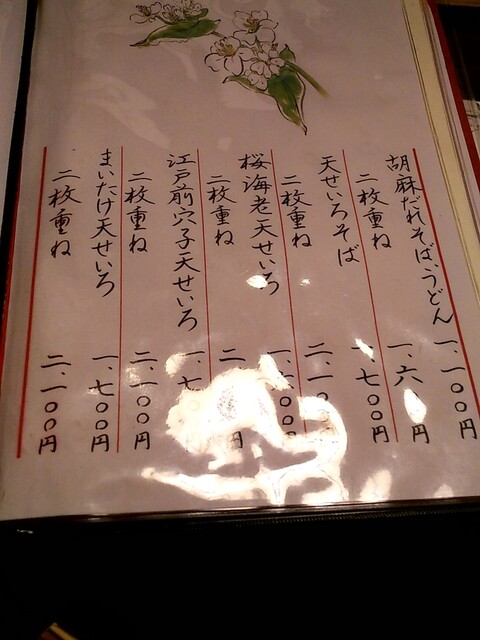 胡麻だれそば、うどん 一、一〇〇円
二枚重ね 一、六 円
天せいろそば 一、七〇〇円
二枚重ね 二、一〇
桜海老天せいろ 一、 〇〇円
二枚重ね 二 円
江戸前穴子天せいろ 一、七
二枚重ね 二、一〇〇円
まいたけ天せいろ 一、七〇〇円
二枚重ね 二、一〇〇円